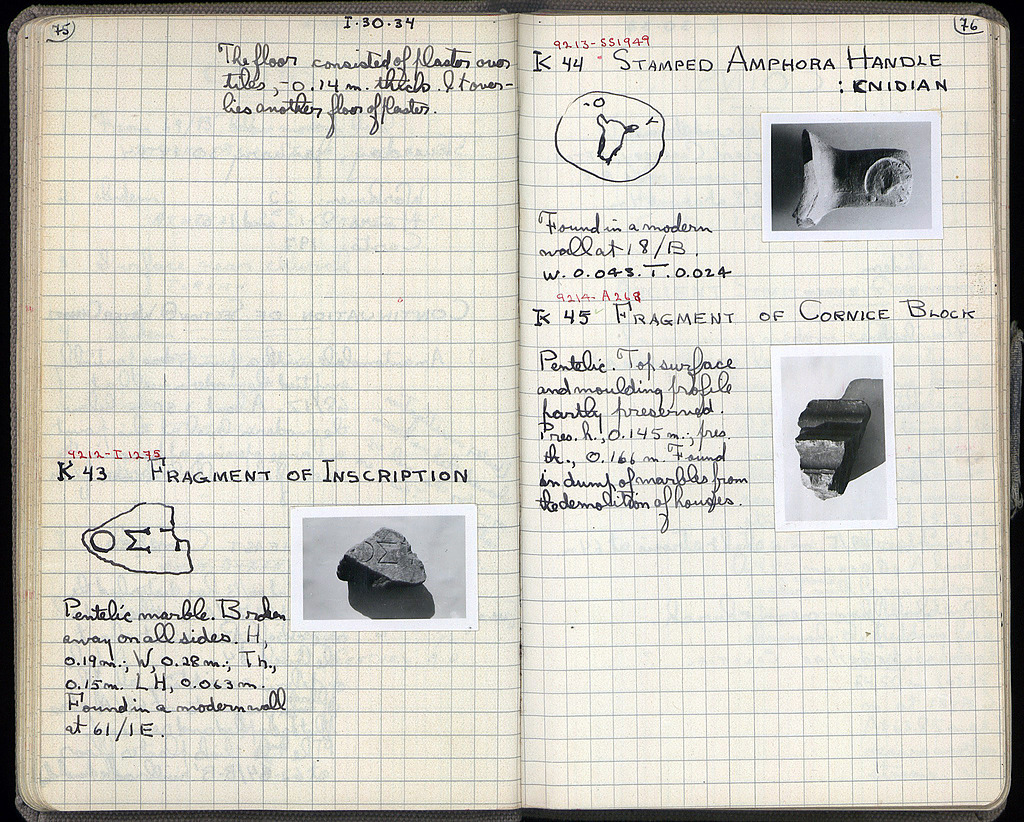 75
I.30.34
The floor consisted of plaster over
tiles, - 0.14 m. thick. It over-
lies another floor of plaster.
9212-I 1275
K 43 FRAGMENT OF INSCRIPTION
ΟΣ
Pentelic marble. Broken
away on all sides. H,
0.19 m.; W, 0.28 m.; Th.,
0.15 m. LH, 0.063 m.
Found in a modern wall
at 61/ΙΕ.
76
9213-SS1949
K 44 STAMPED AMPHORA HANDLE
: KNIDIAN
Found in a modern
wall at 18/B.
W. 0.043. T. 0.024
9214-A268
K 45 FRAGMENT OF CORNICE BLOCK
Pentelic. Top surface
and moulding profile
partly preserved.
Pres. h., 0.145 m.; pres.
th., 0.166 m. Found
in dump of marbles from
the demolition of houses.